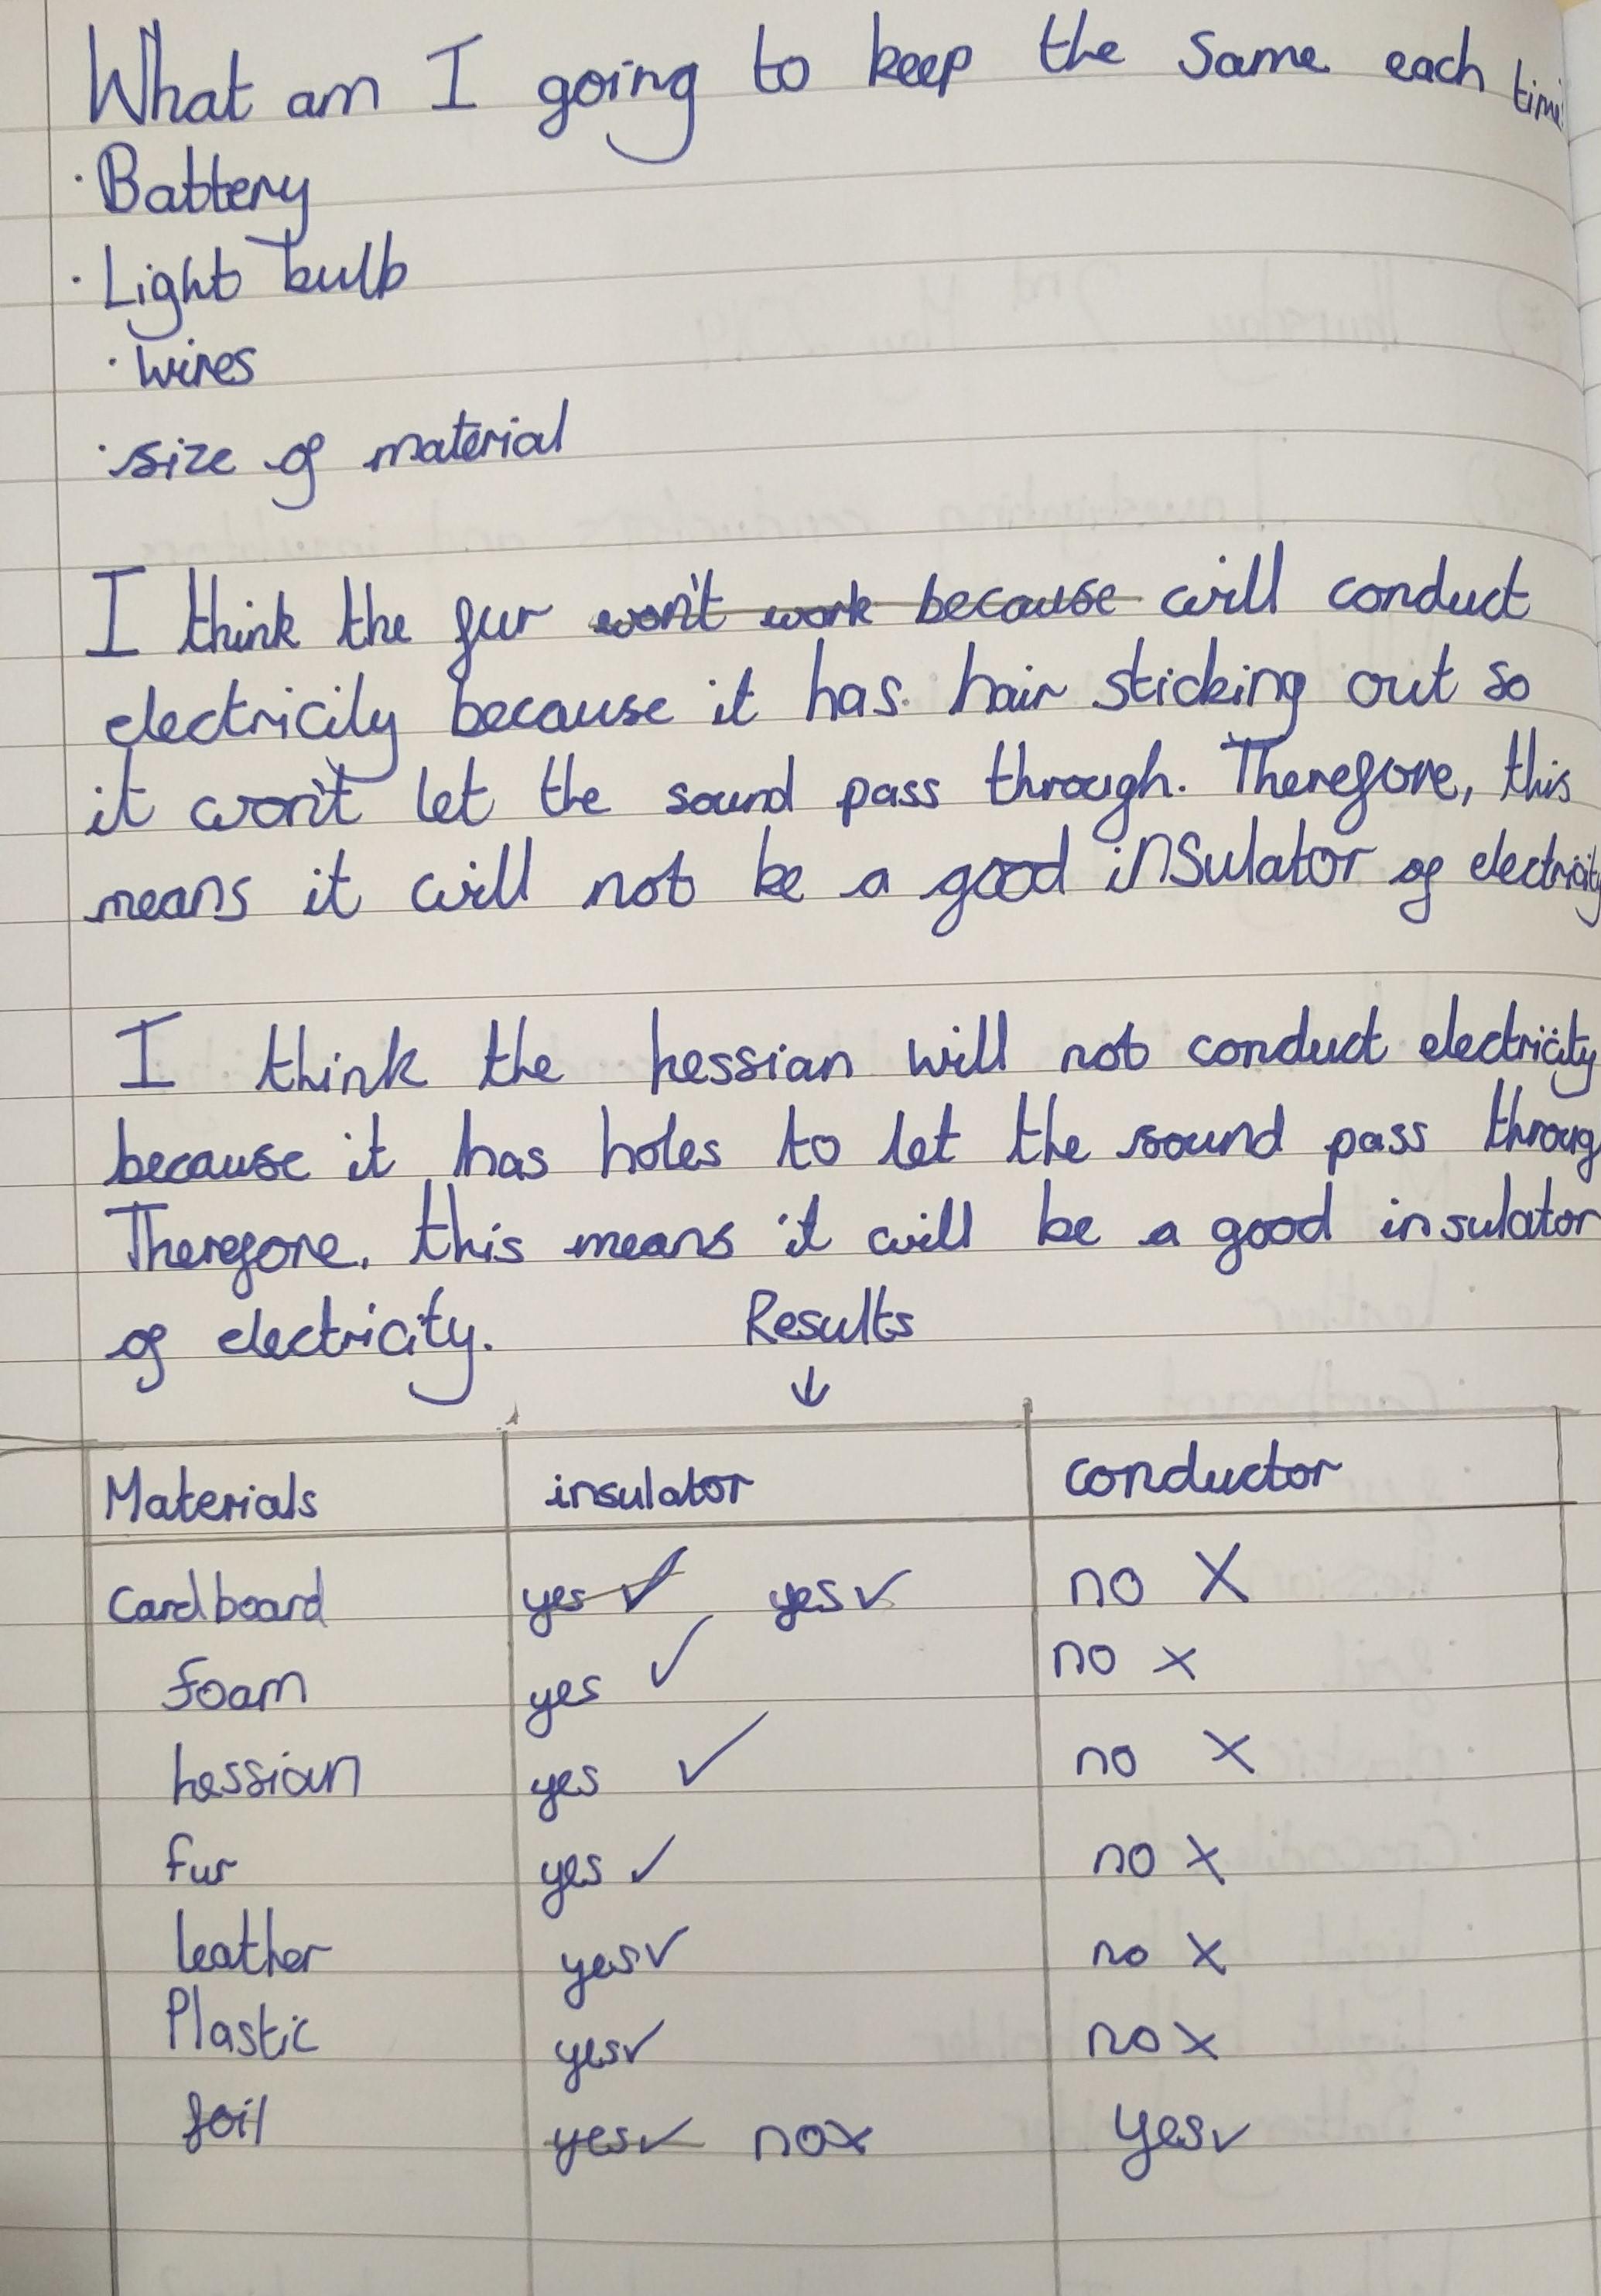 What am I going to keep the same each time
· Battery
· Light bulb
· wires
· size of material
I think the fur won't work because will conduct
electricity because it has hair sticking out so
it won't let the sound pass through. Therefore, this
means it will not be a good insulator of electricity
I think the hessian will not conduct electricity
because it has holes to let the sound pass throug
Therefore, this means it will be a good insulator
of electricity. Results
↓
Materials insulator conductor
Cardboard yes ✓ yes ✓ no X
foam yes ✓ no x
hessian yes ✓ no X
fur yes ✓ no X
leather yes ✓ no X
Plastic yes ✓ no x
foil yes ✓ no x yes ✓